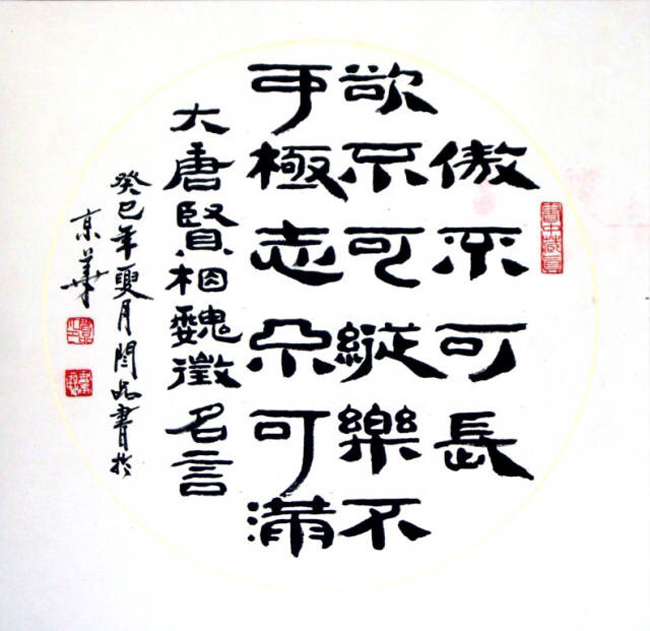 傲不可長
欲不可縱樂不
可極志不可滿
大唐賢相魏徵名言
癸巳年夏月閆品書於
京華